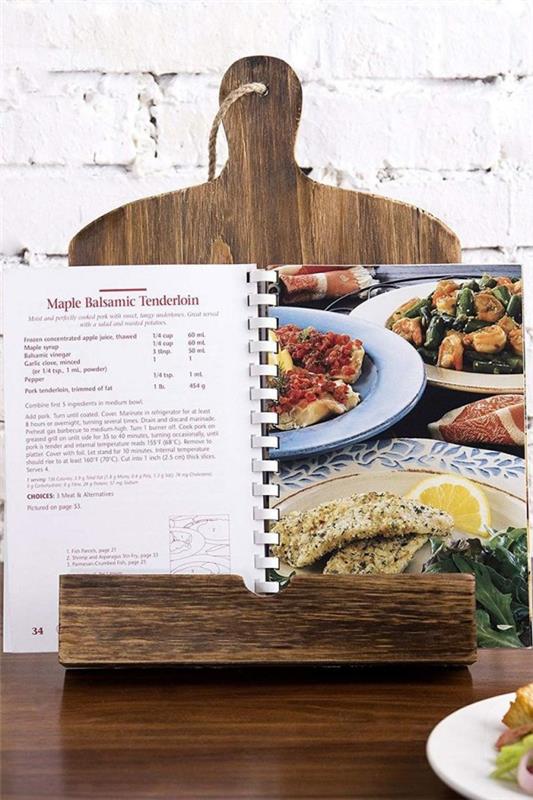 Maple Balsamic Tenderloin
Moist and perfectly cooked pork with sweet, tangy undertones. Great served
with a salad and roasted potatoes.
Frozen concentrated apple juice, thawed 1/4 cup 60 mL
Maple syrup 1/4 cup 60 mL
Balsamic vinegar 3 tbsp. 50 mL
Garlic clove, minced 1 1
(or 1/4 tsp., 1 mL, powder)
Pepper 1/4 tsp. 1 mL
Pork tenderloin, trimmed of fat 1 lb. 454 g
Combine first 5 ingredients in medium bowl.
Add pork. Turn until coated. Cover. Marinate in refrigerator for at least
8 hours or overnight, turning several times. Drain and discard marinade.
Preheat gas barbecue to medium-high. Turn 1 burner off. Cook pork on
greased grill on unlit side for 35 to 40 minutes, turning occasionally, until
pork is tender and internal temperature reads 155°F (68°C). Remove to
platter. Cover with foil. Let stand for 10 minutes. Internal temperature
should rise to at least 160°F (70°C). Cut into 1 inch (2.5 cm) thick slices.
Serves 4.
CHOICES: 3 Meat & Alternatives
Pictured on page 53.
1. Fish Parcels, page 21
2. Shrimp and Asparagus Stir-Fry, page 33
3. Parmesan-Crumbed Fish, page 25
34